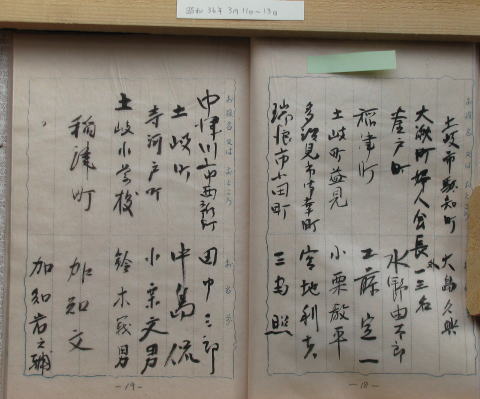 昭和36年3月11日〜13日
お役名又はおところ お名前
土岐市駄知町 大島久興
大湫町婦人会長 外三名
釜戸町 水野由不郎
稲津町 工藤定一
土岐町益見 小栗敬平
多治見市幸町 宮地利吉
瑞浪市小田町 三島照
—18—
お役名又はおところ お名前
中津川市西新町 田中三郎
土岐町 中島侃
寺河戸町 小栗文男
土岐小学校 鈴木義男
稲津町 加知文
〃 加知岩之輔
—19—